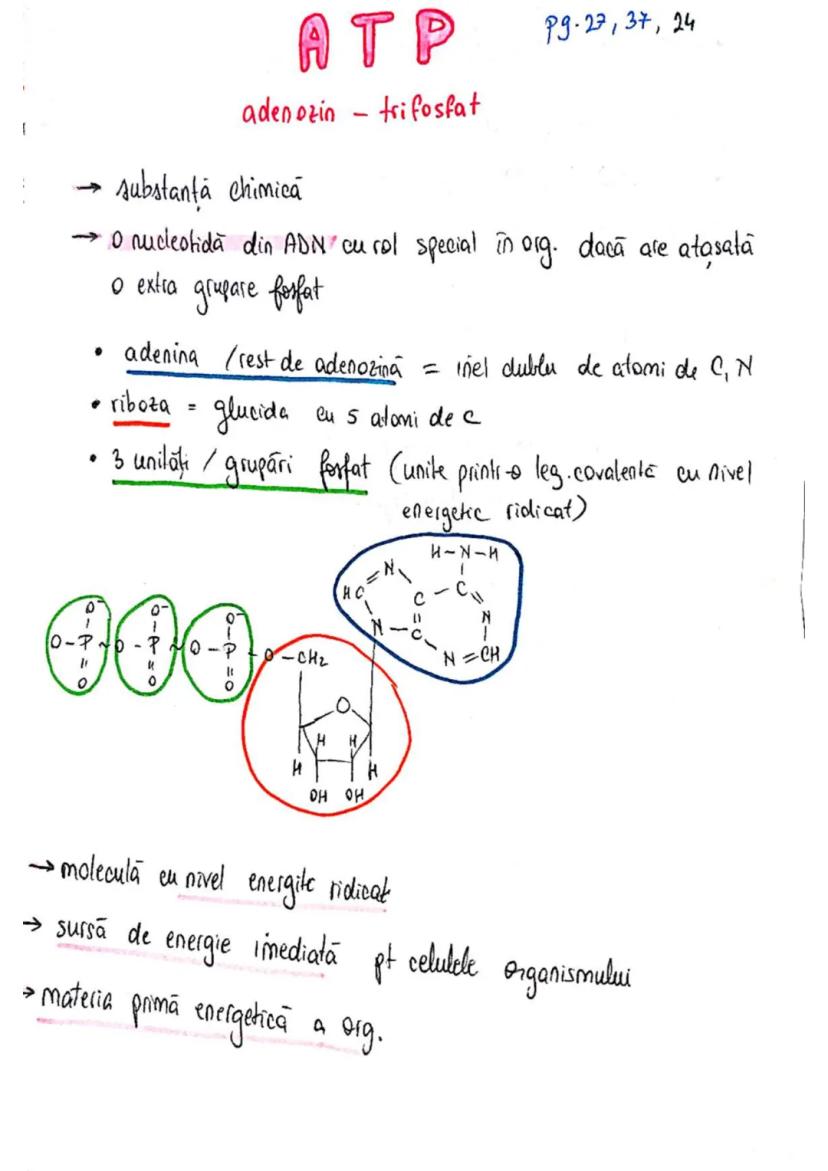 ATP
pg. 27, 37, 24
adenozin - trifosfat
→ substanță chimică
→ o nucleotidă din ADN cu rol special în org. dacă are atașată
o extra grupare fosfat
• adenina / rest de adenozină = inel dublu de atomi de C, N
• riboza = glucida cu 5 atomi de C
• 3 unități / grupări fosfat (unite printr-o leg. covalentă cu nivel
energetic ridicat)
H-N-H
N
HC
C - C
N
N - C
N
N = CH
O⁻ O⁻ O⁻
O-P~O-P~O-P-O-CH₂
O O O
O
H H
H H
OH OH
→ moleculă cu nivel energitc ridicat
→ sursă de energie imediată pt celulele organismului
→ materia primă energetică a org.